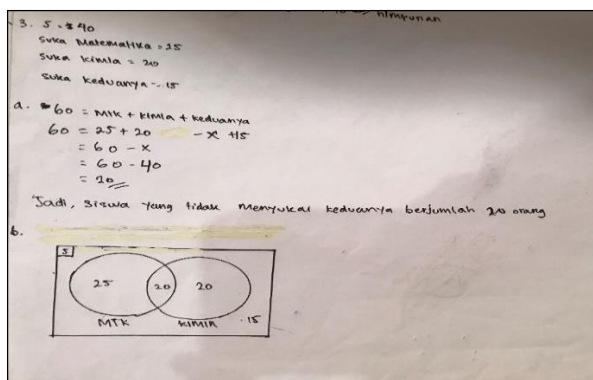 himpunan
3. S = 40
Suka Matematika = 25
Suka Kimia = 20
Suka Keduanya = 15
a. 60 = MTK + Kimia + Keduanya
60 = 25 + 20 - x + 15
= 60 - x
= 60 - 40
= 20
Jadi, siswa yang tidak menyukai keduanya berjumlah 20 orang
b.
S
25 20 20
MTK KIMIA .15